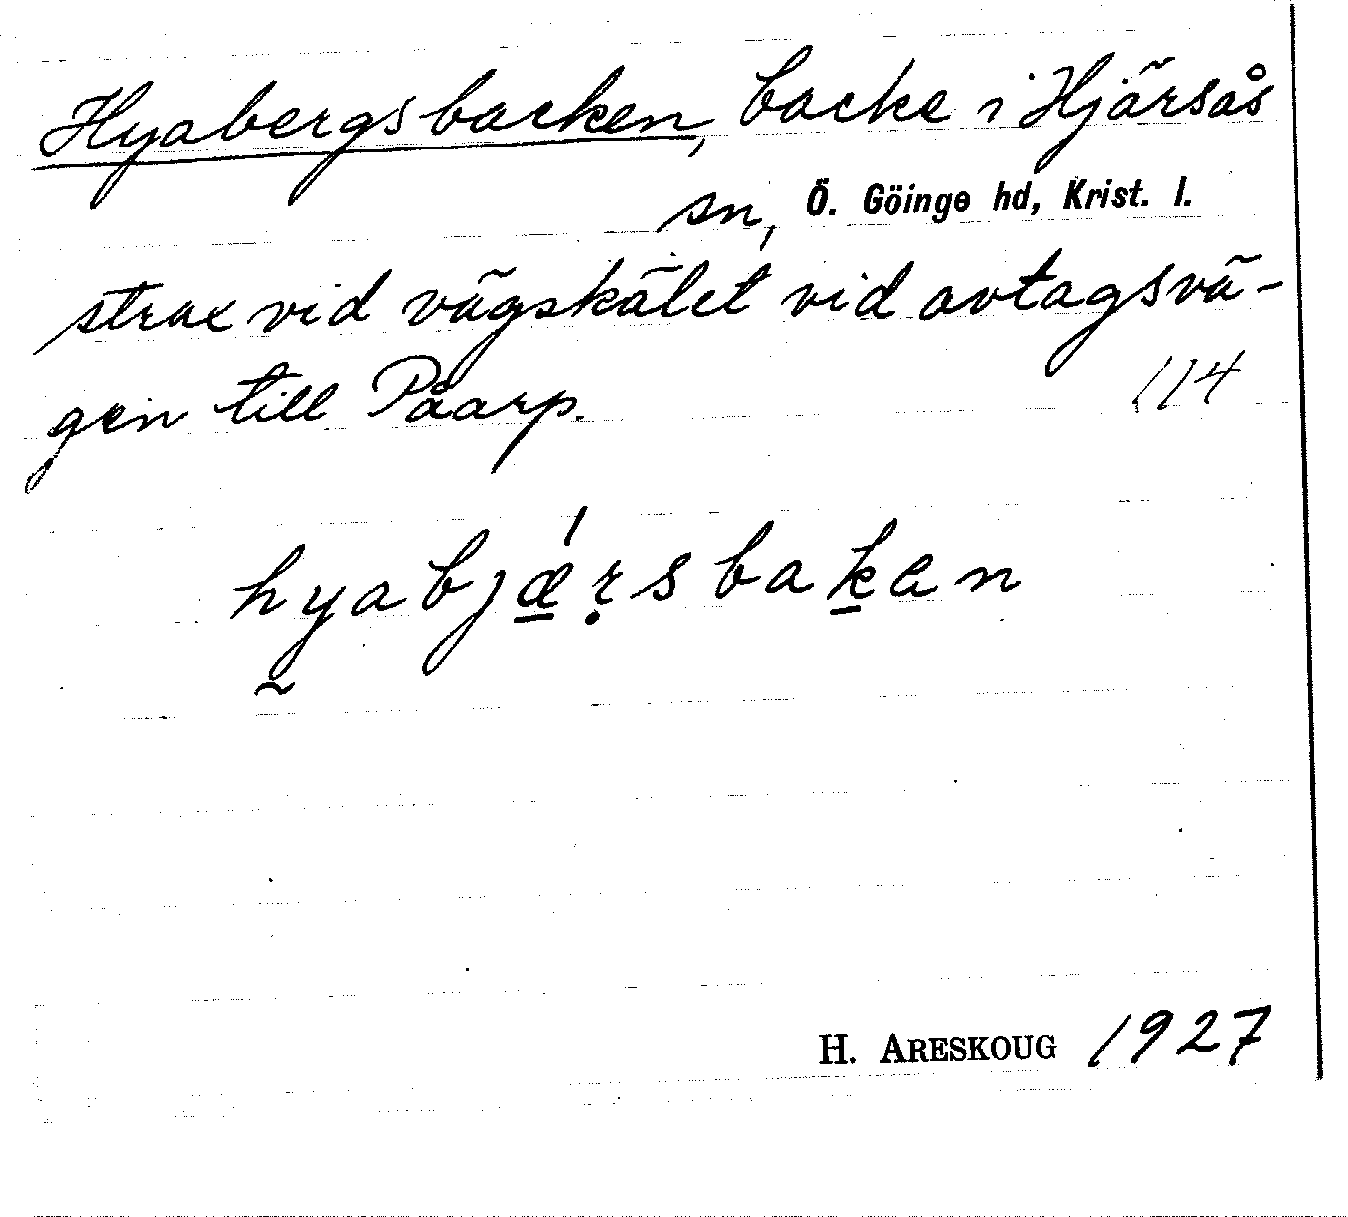 Hyabergsbacken, backe i Hjärsås
sn, Ö. Göinge hd, Krist. l.
strax vid vägskälet vid avtagsvä-
gen till Påarp. 114
hyabjǽ̱ṛsbaḵan
H. ARESKOUG 1927